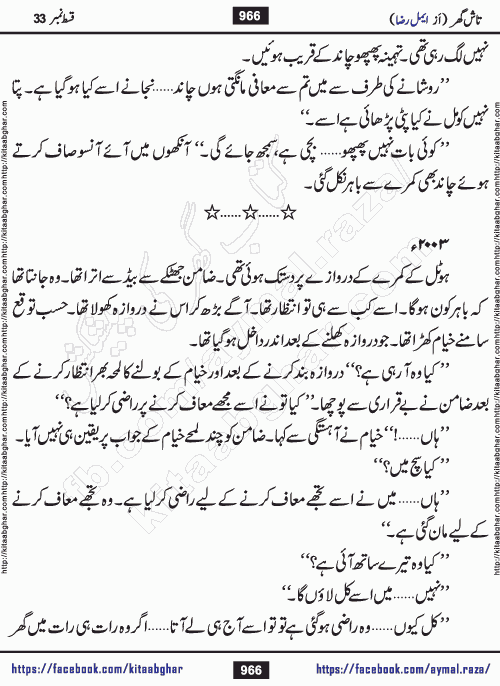 تاش گھر (از ایمل رضا)
966
قسط نمبر 33
نہیں لگ رہی تھی۔ تہمینہ پھپھو چاند کے قریب ہوئیں۔
’’روشانے کی طرف سے میں تم سے معافی مانگتی ہوں چاند......نجانے اسے کیا ہوگیا ہے۔ پتا
نہیں کومل نے کیا پٹی پڑھائی ہے اسے۔‘‘
’’کوئی بات نہیں پھپھو...... بچی ہے، سمجھ جائے گی۔‘‘ آنکھوں میں آئے آنسو صاف کرتے
ہوئے چاند بھی کمرے سے باہر نکل گئی۔
☆......☆......☆
۲۰۰۳ء
ہوٹل کے کمرے کے دروازے پر دستک ہوئی تھی۔ ضامن جھٹکے سے بیڈ سے اترا تھا۔ وہ جانتا تھا
کہ باہر کون ہوگا۔ اسے کب سے ہی تو انتظار تھا۔ آگے بڑھ کر اس نے دروازہ کھولا تھا۔ حسب توقع
سامنے خیام کھڑا تھا۔ جو دروازہ کھلنے کے بعد اندر داخل ہوگیا تھا۔
’’کیا وہ آ رہی ہے؟‘‘ دروازہ بند کرنے کے بعد اور خیام کے بولنے کا لمحہ بھر انتظار کرنے کے
بعد ضامن نے بے قراری سے پوچھا۔ ’’کیا تو نے اسے مجھے معاف کرنے پر راضی کرلیا ہے؟‘‘
’’ہاں......!‘‘ خیام نے آہستگی سے کہا۔ ضامن کو چند لمحے خیام کے جواب پر یقین ہی نہیں آیا۔
’’کیا سچ میں؟‘‘
’’ہاں...... میں نے اسے تجھے معاف کرنے کے لیے راضی کرلیا ہے۔ وہ تجھے معاف کرنے
کے لیے مان گئی ہے۔‘‘
’’کیا وہ تیرے ساتھ آئی ہے؟‘‘
’’نہیں...... میں اسے کل لاؤں گا۔‘‘
’’کل کیوں......وہ راضی ہوگئی ہے تو تو اسے آج ہی لے آتا......اگر وہ رات ہی رات میں گھر
https://facebook.com/kitaabghar
966
https://facebook.com/aymal.raza/